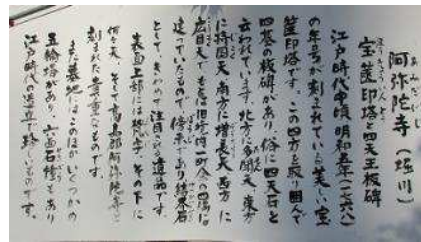 阿弥陀寺（堀川）
あみだじ
宝篋印塔と四天王板碑
ほうきょういんとう
江戸時代中頃、明和五年（一七六八）
の年号が刻まれている美しい宝
篋印塔です。この四方を取り囲んで
四基の板碑があり、俗に四天石と
云われています。北方に多聞天、東方
に持国天、南方に増長天、西方に
広目天で、もとは旧境内一町余の四隅に
建っていたもので、傍示であり結界石
として、きわめて注目される遺品です。
表面上部には梵字、その下に
何々天、そして高島郡阿弥陀寺と
刻まれた貴重なものです。
また墓地には、このほかいくつかの
五輪塔があり、六面石幢もあり
江戸時代の造立で珍しいものです。